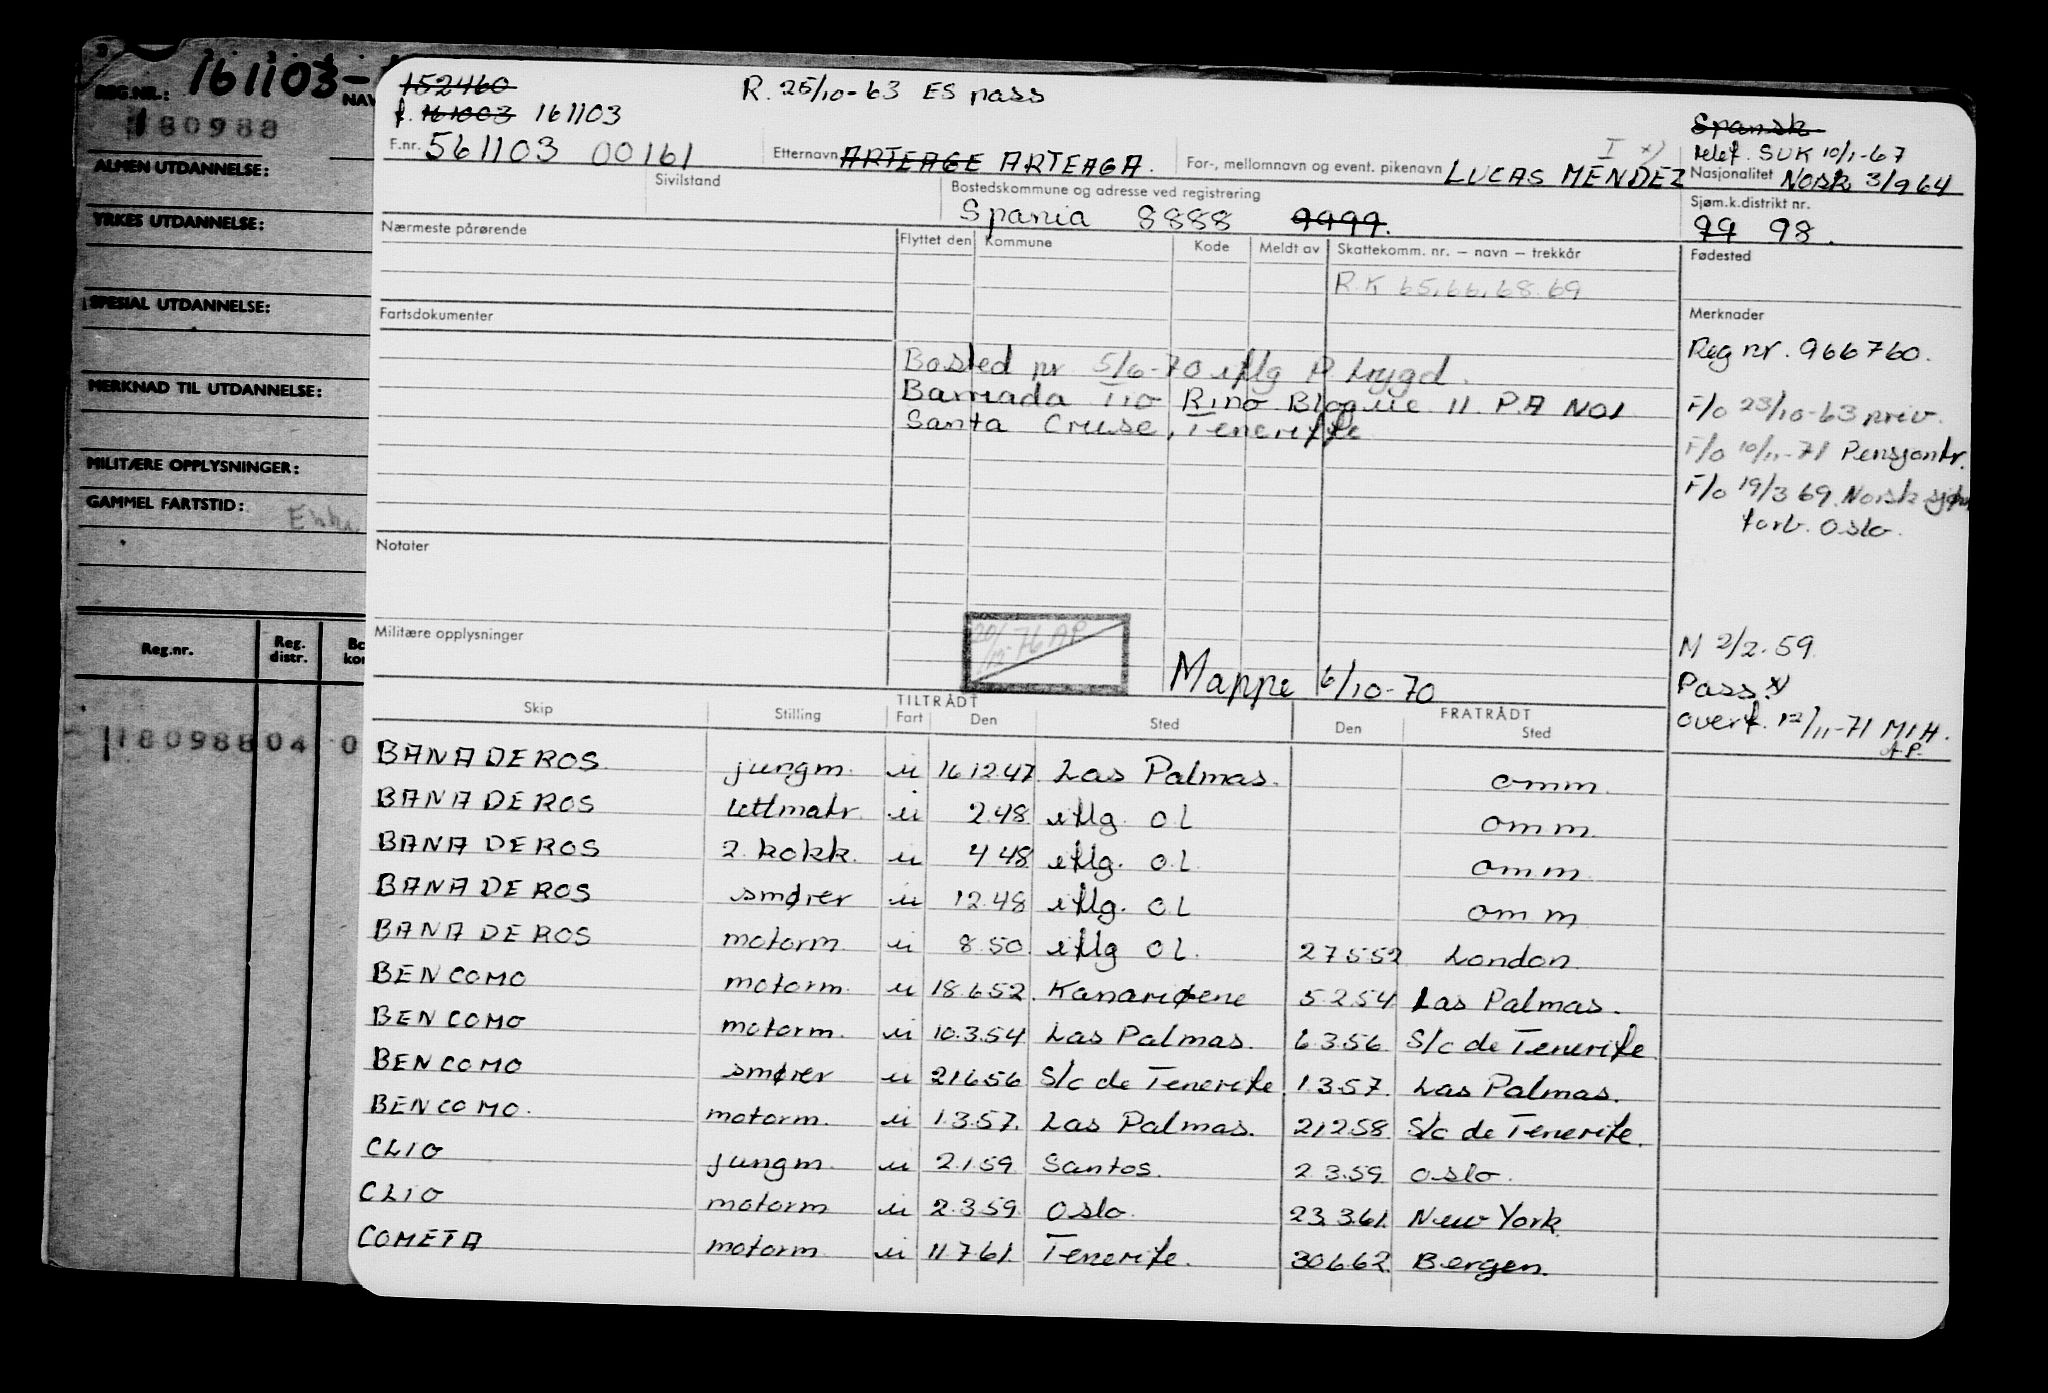 REG.NR.: 161103-
NAV
180988
ALMEN UTDANNELSE:
YRKES UTDANNELSE:
SPESIAL UTDANNELSE:
MERKNAD TIL UTDANNELSE:
MILITÆRE OPPLYSNINGER:
GAMMEL FARTSTID:
Reg.nr. Reg. distr. Bo kon
1180988 04 0
152460 R. 25/10-63 ES pass
f. 161003 161103 Spansk
telef. SUK 10/1-67
F.nr. 561103 00161 Etternavn ARTEAGE ARTEAGA. For-, mellomnavn og event. pikenavn LUCAS MENDEZ I x) Nasjonalitet Norsk 3/9 64
Sivilstand Bostedskommune og adresse ved registrering Sjøm.k.distrikt nr.
Spania 8888 9999. 99 98.
Nærmeste pårørende Flyttet den Kommune Kode Meldt av Skattekomm. nr. – navn – trekkår Fødested
R.K 65,66,68.69
Fartsdokumenter Merknader
Reg nr. 966760.
Bosted pr 5/6-70 iflg P. trygd.
Barriada Tio Rino Bloque 11. P.A NO1 F/o 23/10-63 priv.
Santa Cruse, Teneriffe
F/o 10/11-71 Pensjontr.
F/o 19/3 69. Norsk sjøm
forb. Oslo.
Notater
Militære opplysninger 76 AP M 2/2.59
Mappe 6/10-70 Pass x)
overf. 12/11-71 MIH.
A.P.
Skip Stilling TILTRÅDT Fart Den Sted FRATRÅDT Den Sted
BANADEROS jungm. u 16 12 47 Las Palmas. omm.
BANADEROS lettmatr. u 2.48 iflg. OL omm.
BANADEROS 2. kokk. u 4 48 iflg. O.L. omm.
BANADEROS smører u 12.48 iflg. OL omm
BANADEROS motorm u 8.50. iflg OL. 27 5 52 London.
BENCOMO motorm. u 18.6.52. Kanariøene 5.2.54 Las Palmas.
BENCOMO motorm. u 10.3.54 Las Palmas. 6.3.56 S/c de Tenerife
BENCOMO smører u 21656 S/c de Tenerife 1.3.57. Las Palmas.
BENCOMO. motorm. u 1.3.57. Las Palmas. 21258. S/c de Tenerife.
CLIO jungm. u 2.1.59 Santos. 2 3.59 Oslo.
CLIO motorm u 2.3.59. Oslo. 23.3.61. New York.
COMETA motorm u 11 7 61. Tenerife. 30.6.62. Bergen.